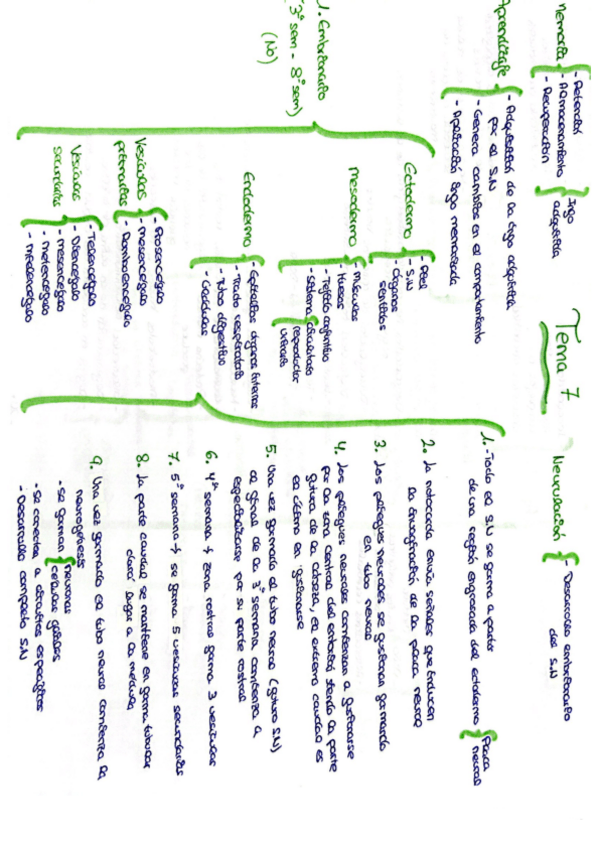 Tema 7
Memoria
- Retención
- Almacenamiento
- Recuperación
Info
adquirida
Aprendizaje
- Adquisición de la info adquirida
por el S.N
- Genera cambios en el comportamiento
- Aplicación info memorizada
1. Embrionario
3ª sem - 8ª sem)
(No)
Ectodermo
- Piel
- S.N
- órganos
sentidos
Mesodermo
- Músculos
- Huesos
- Tejido conjuntivo
- Sistema
circulatorio
reproductor
urinario
Endodermo
- Epitelios órganos internos
- Tracto respiratorio
- Tubo digestivo
- Glándulas
Vesículas
primarias
- Prosencéfalo
- Mesencéfalo
- Romboencéfalo
Vesículas
secundarias
- Telencéfalo
- Diencéfalo
- Mesencéfalo
- Metencéfalo
- Mielencéfalo
Neurulación
- Desarrollo embrionario
del S.N
1. - Todo el S.N se forma a partir
de una región engrosada del ectodermo
Placa
neural
2. La notocorda envía señales que inducen
la transformación de la placa neural
3. Los pliegues neurales se fusionan formando
el tubo neural
4. Los pliegues neurales comienzan a fusionarse
por la zona central del embrión siendo la parte
futura de la cabeza, el extremo caudal es
el último en fusionarse
5. Una vez formado el tubo neural (futuro S.N)
al final de la 3ª semana, comienza a
especializarse por su parte rostral
6. 4ª semana → zona rostral forma 3 vesículas
7. 5ª semana → se forma 5 vesículas secundarias
8. La parte caudal se mantiene en forma tubular
dará lugar a la médula
9. Una vez formado el tubo neural comienza la
neurogénesis
- se forman
neuronas
células gliales
- se conectan a circuitos específicos
- Desarrollo completo S.N